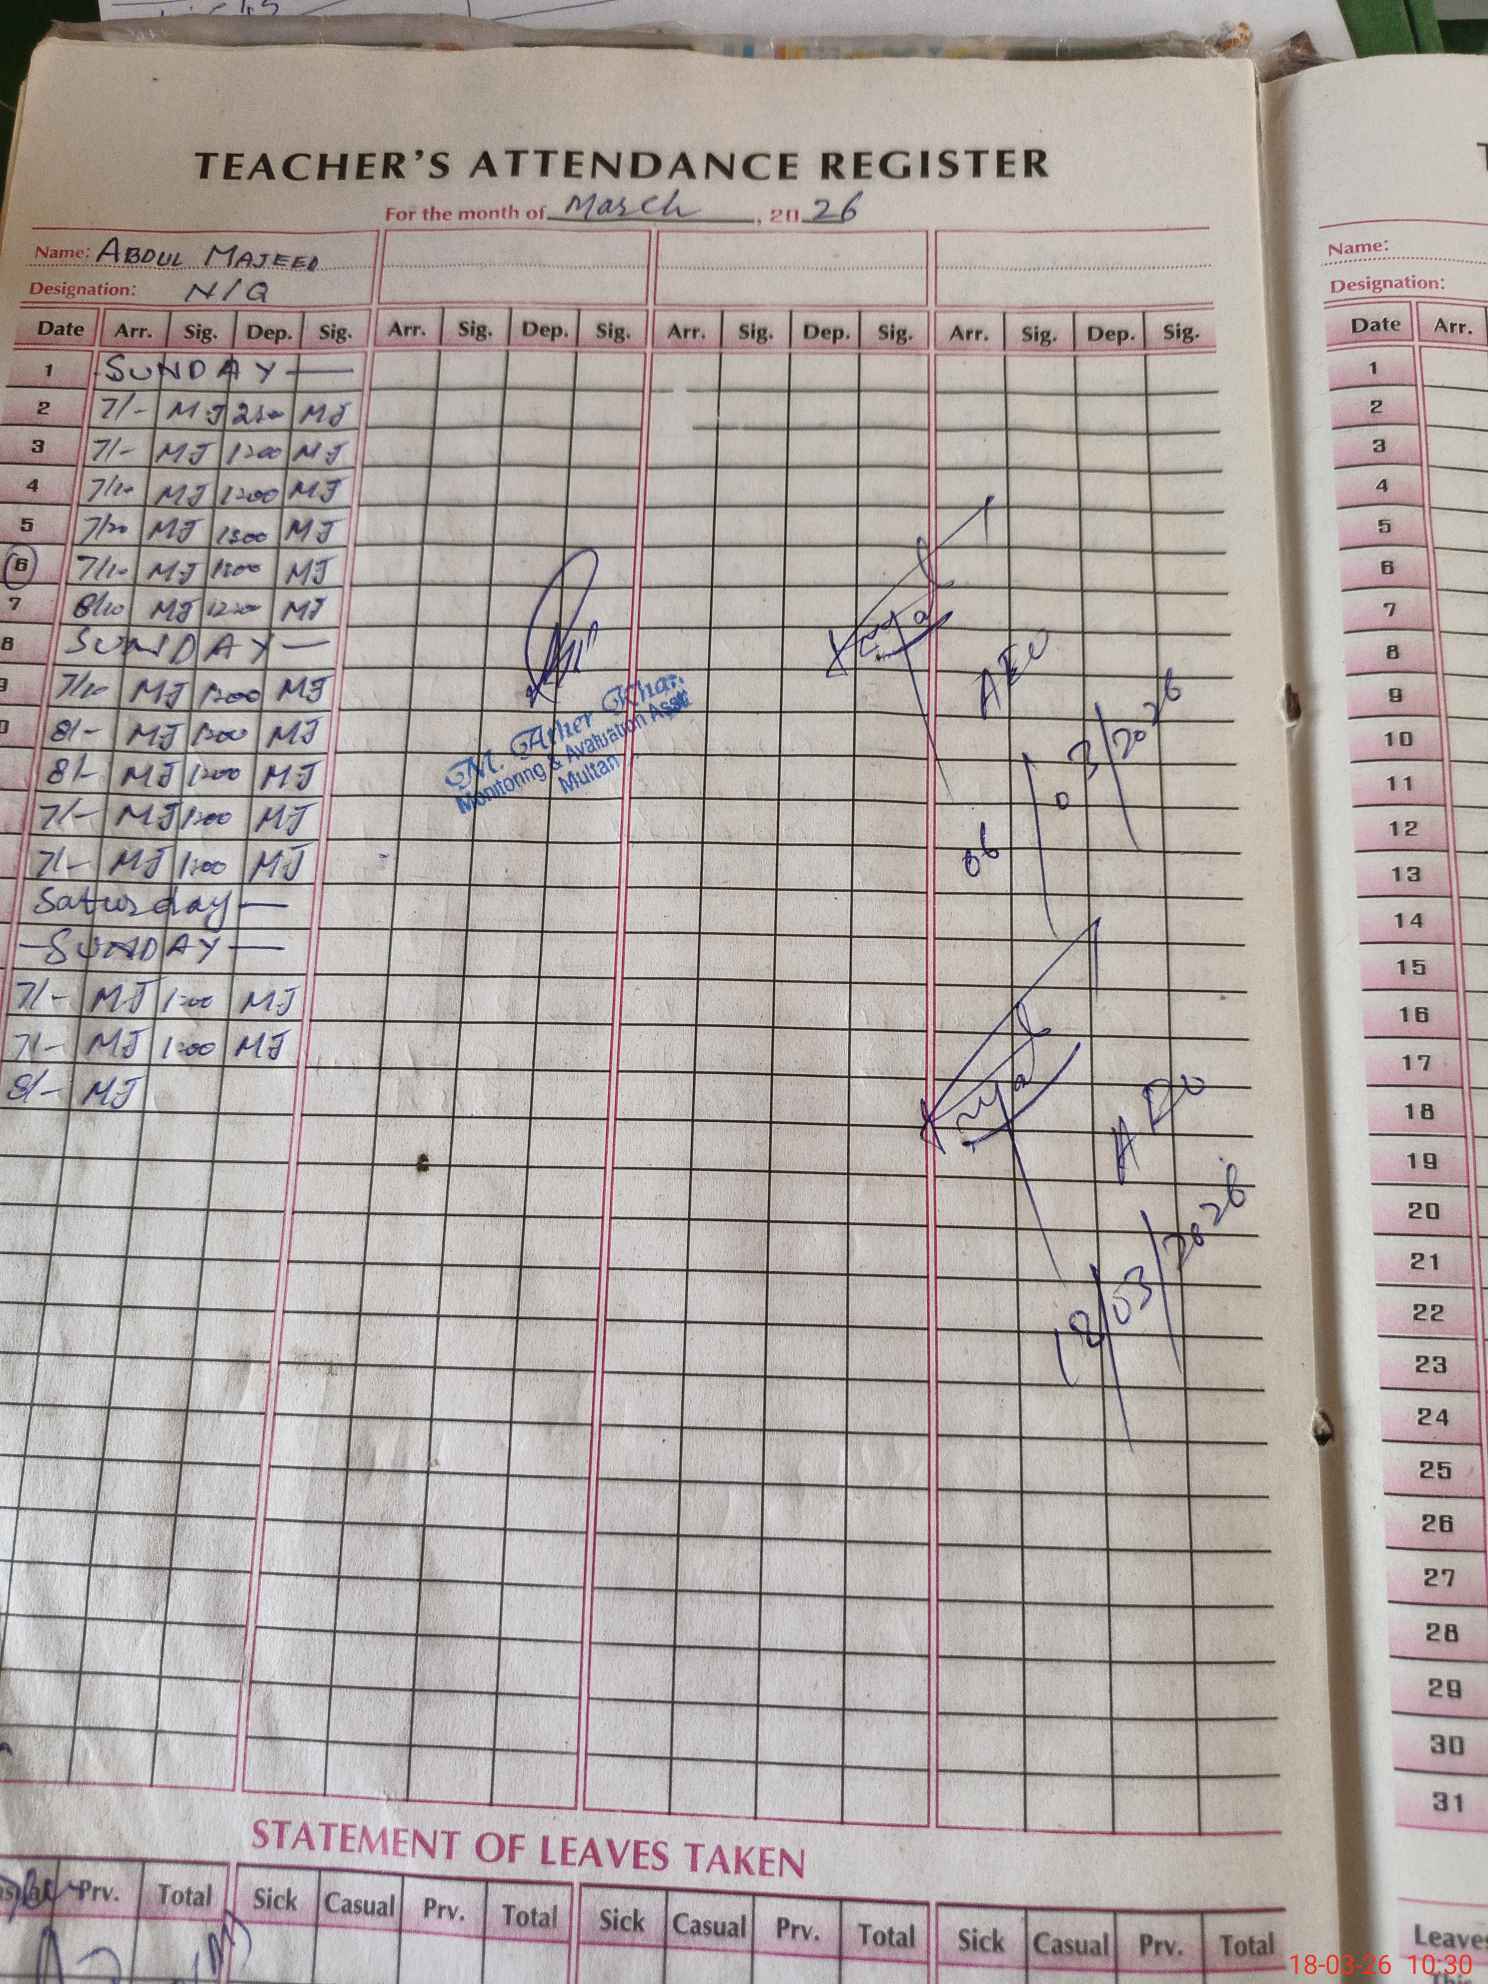 TEACHER'S ATTENDANCE REGISTER
For the month of March, 2026
Name: ABDUL MAJEED
Designation: N/Q
Date Arr. Sig. Dep. Sig. Arr. Sig. Dep. Sig. Arr. Sig. Dep. Sig. Arr. Sig. Dep. Sig.
1 SUNDAY —
2 7/- MJ MJ
3 7/- MJ 1200 MJ
4 7/10 MJ 1200 MJ
5 7/20 MJ 1300 MJ
6 7/10 MJ 1200 MJ
7 8/10 MJ 1220 MJ
8 SUNDAY —
7/10 MJ 1200 MJ
8/- MJ 1200 MJ
8/- MJ 1200 MJ
7/- MJ 1200 MJ
7/- MJ MJ
Saturday —
— SUNDAY —
7/- MJ MJ
7/- MJ MJ
8/- MJ
M. Ather Khan
Monitoring & Avaluation Asstt
Multan
AEO
06/03/2026
AEO
18/03/2026
STATEMENT OF LEAVES TAKEN
Prv. Total Sick Casual Prv. Total Sick Casual Prv. Total Sick Casual Prv. Total
Name:
Designation:
Date Arr.
1
2
3
4
5
6
7
8
9
10
11
12
13
14
15
16
17
18
19
20
21
22
23
24
25
26
27
28
29
30
31
Leaves
18-03-26 10:30